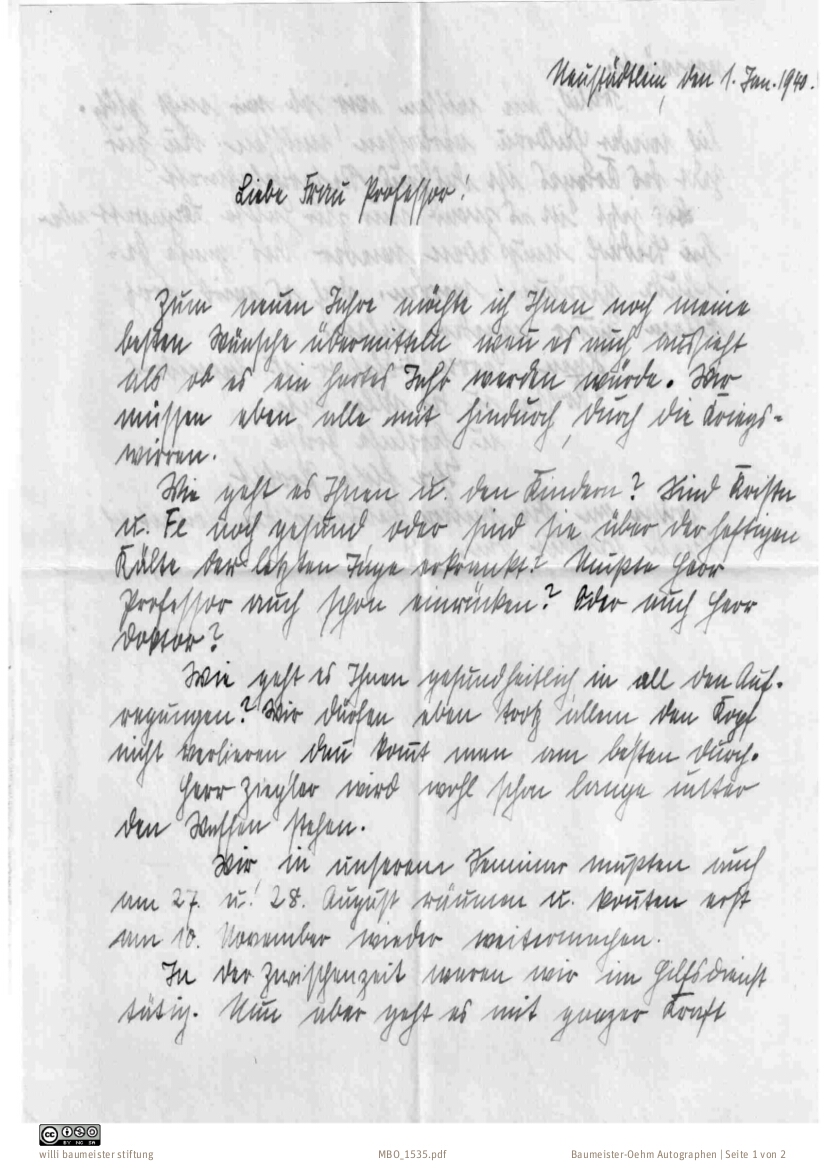 Neustädtlein, den 1. Jan. 1940.
Liebe Frau Professor!
Zum neuen Jahre möchte ich Ihnen noch meine
besten Wünsche übermitteln wen es auch aussieht
als ob es ein hartes Jahr werden würde. Wir
müssen eben alle mit hindurch, durch die Kriegs-
wirren.
Wie geht es Ihnen u. den Kindern? Sind Kristn
u. Fe noch gesund oder sind sie über der heftigen
Kälte der letzten Tage erkrankt? Mußte Herr
Professor auch schon einrücken? Oder auch Herr
Doktor?
Wie geht es Ihnen gesundheitlich in all den Auf-
regungen? Wir dürfen eben trotz allem den Kopf
nicht verlieren den komt man am besten durch.
Herr Ziegler wird wohl schon lange unter
den Waffen stehen.
Wir in unserem Seminar mußten auch
am 27. u. 28. August räumen u. konten erst
am 10. November wieder weitermachen.
In der Zwischenzeit waren wir im Hilfsdienst
tätig. Nun aber geht es mit ganzer Kraft
willi baumeister stiftung
MBO_1535.pdf
Baumeister-Oehm Autographen | Seite 1 von 2